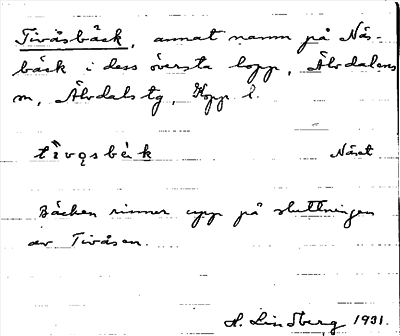 Tivåsbäck, annat namn på Näs-
bäck i dess översta lopp, Älvdalens
sn, Älvdals tg, Kopp l.
tìvǫsbèk Näset
Bäcken rinner upp på sluttningen
av Tivåsen.
H. Lindberg 1931.